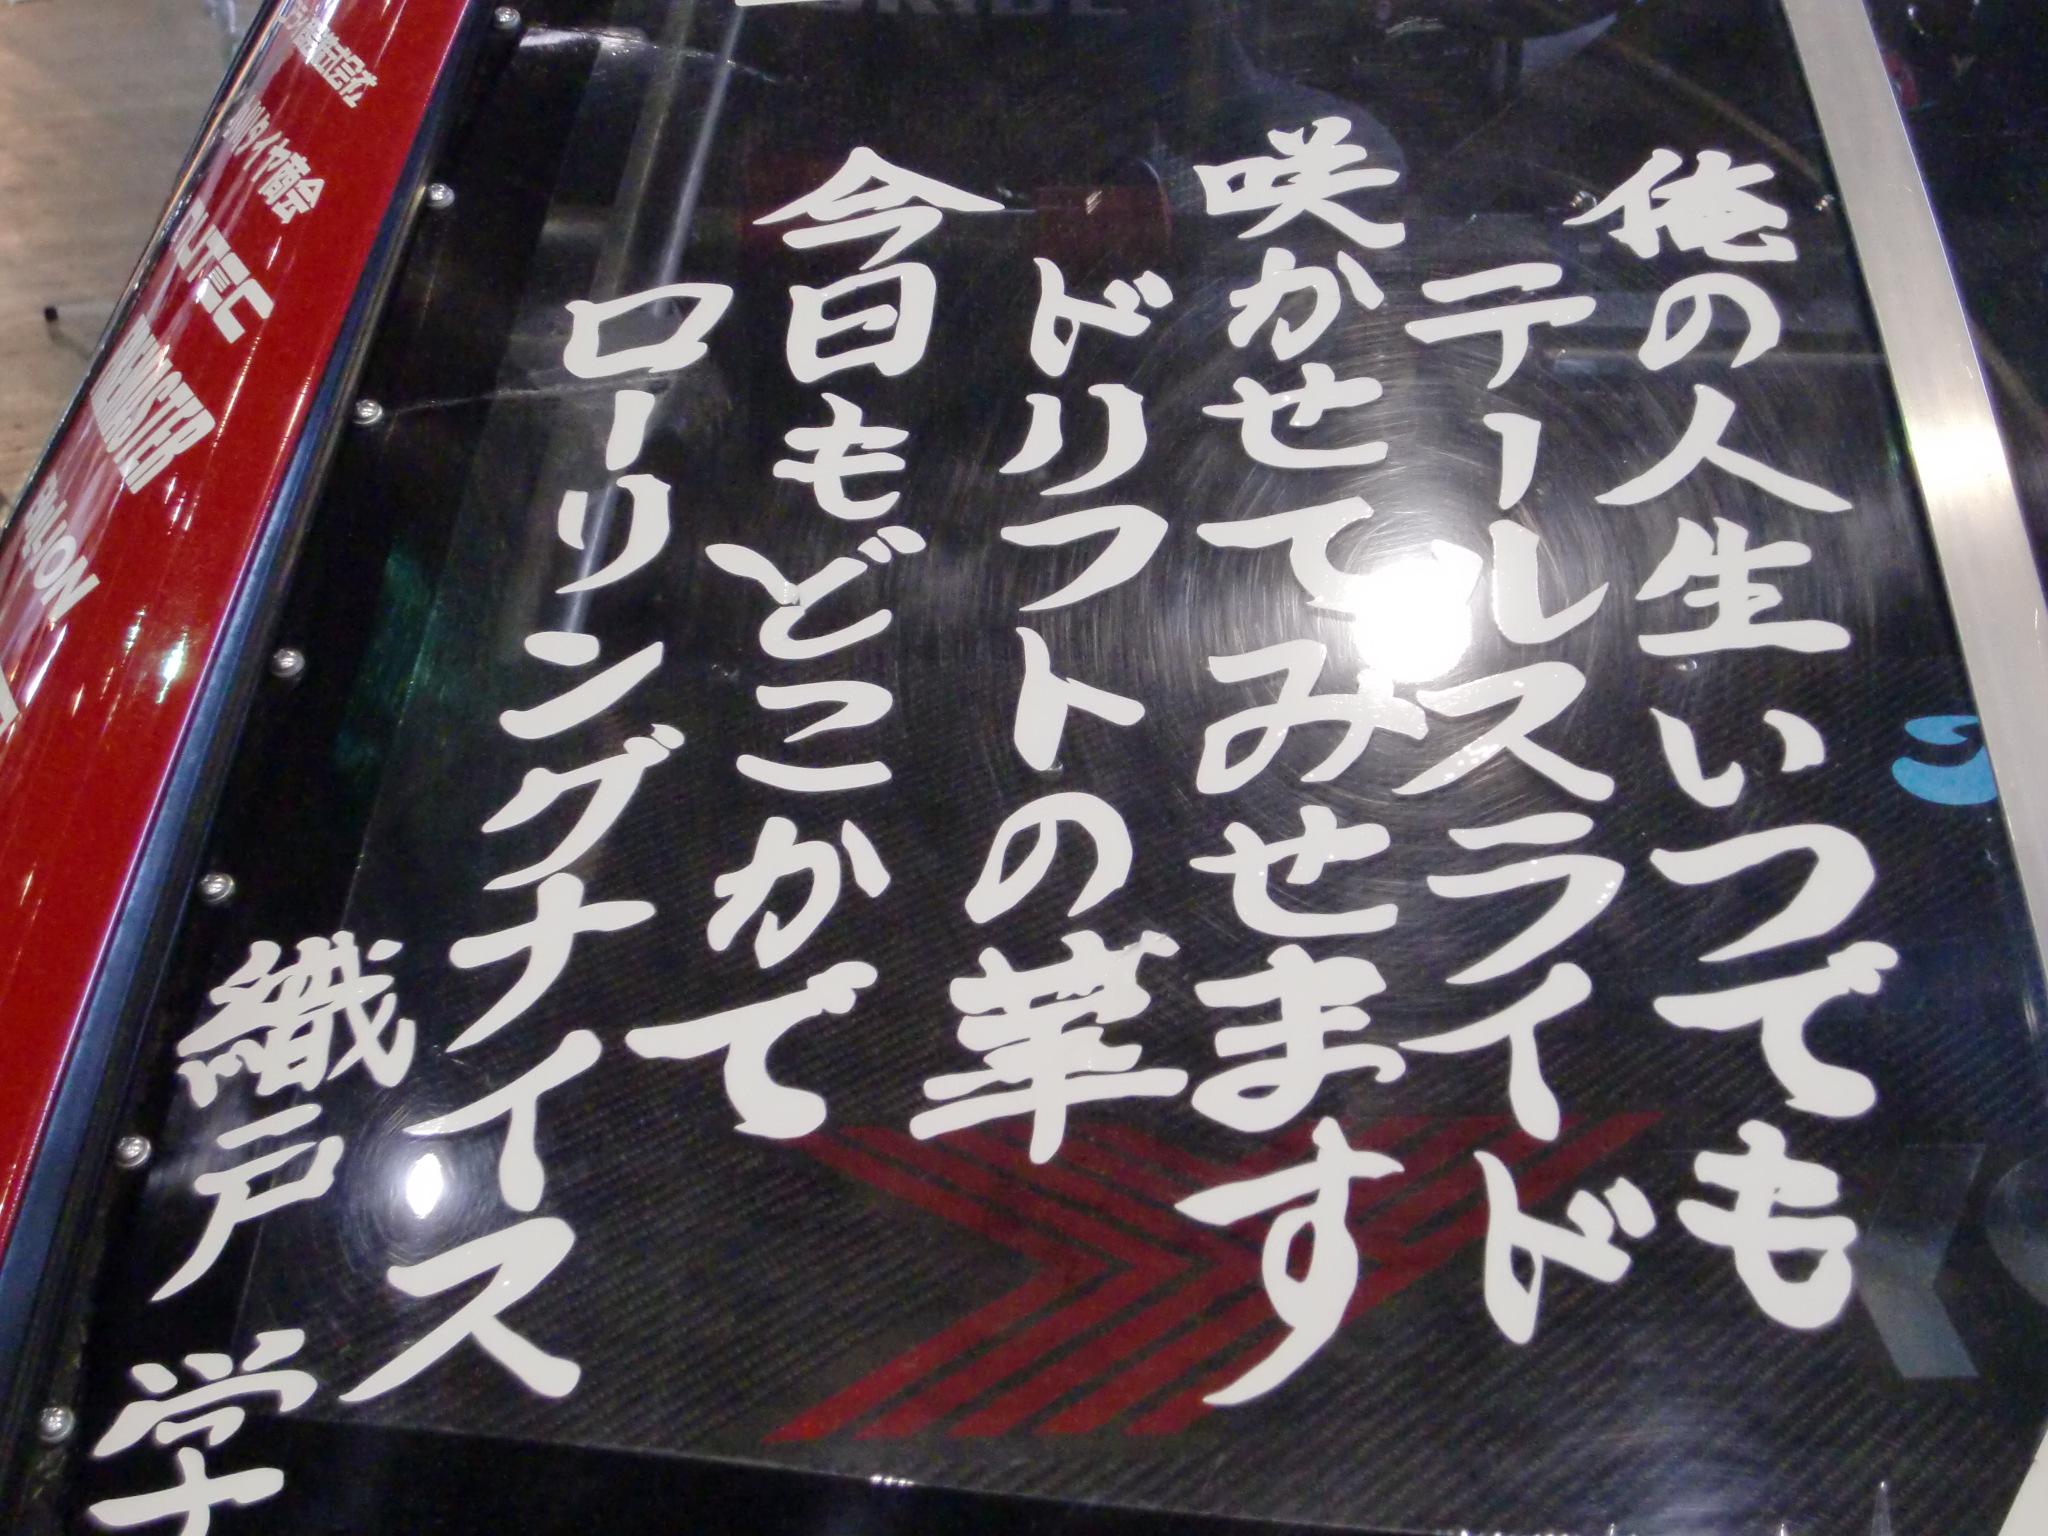 俺の人生いつでも
テールスライド
咲かせてみせます
ドリフトの華
今日もどこかで
ローリングナイス
織戸 学
株式会社
タイヤ商会
AUTEC
BILLION